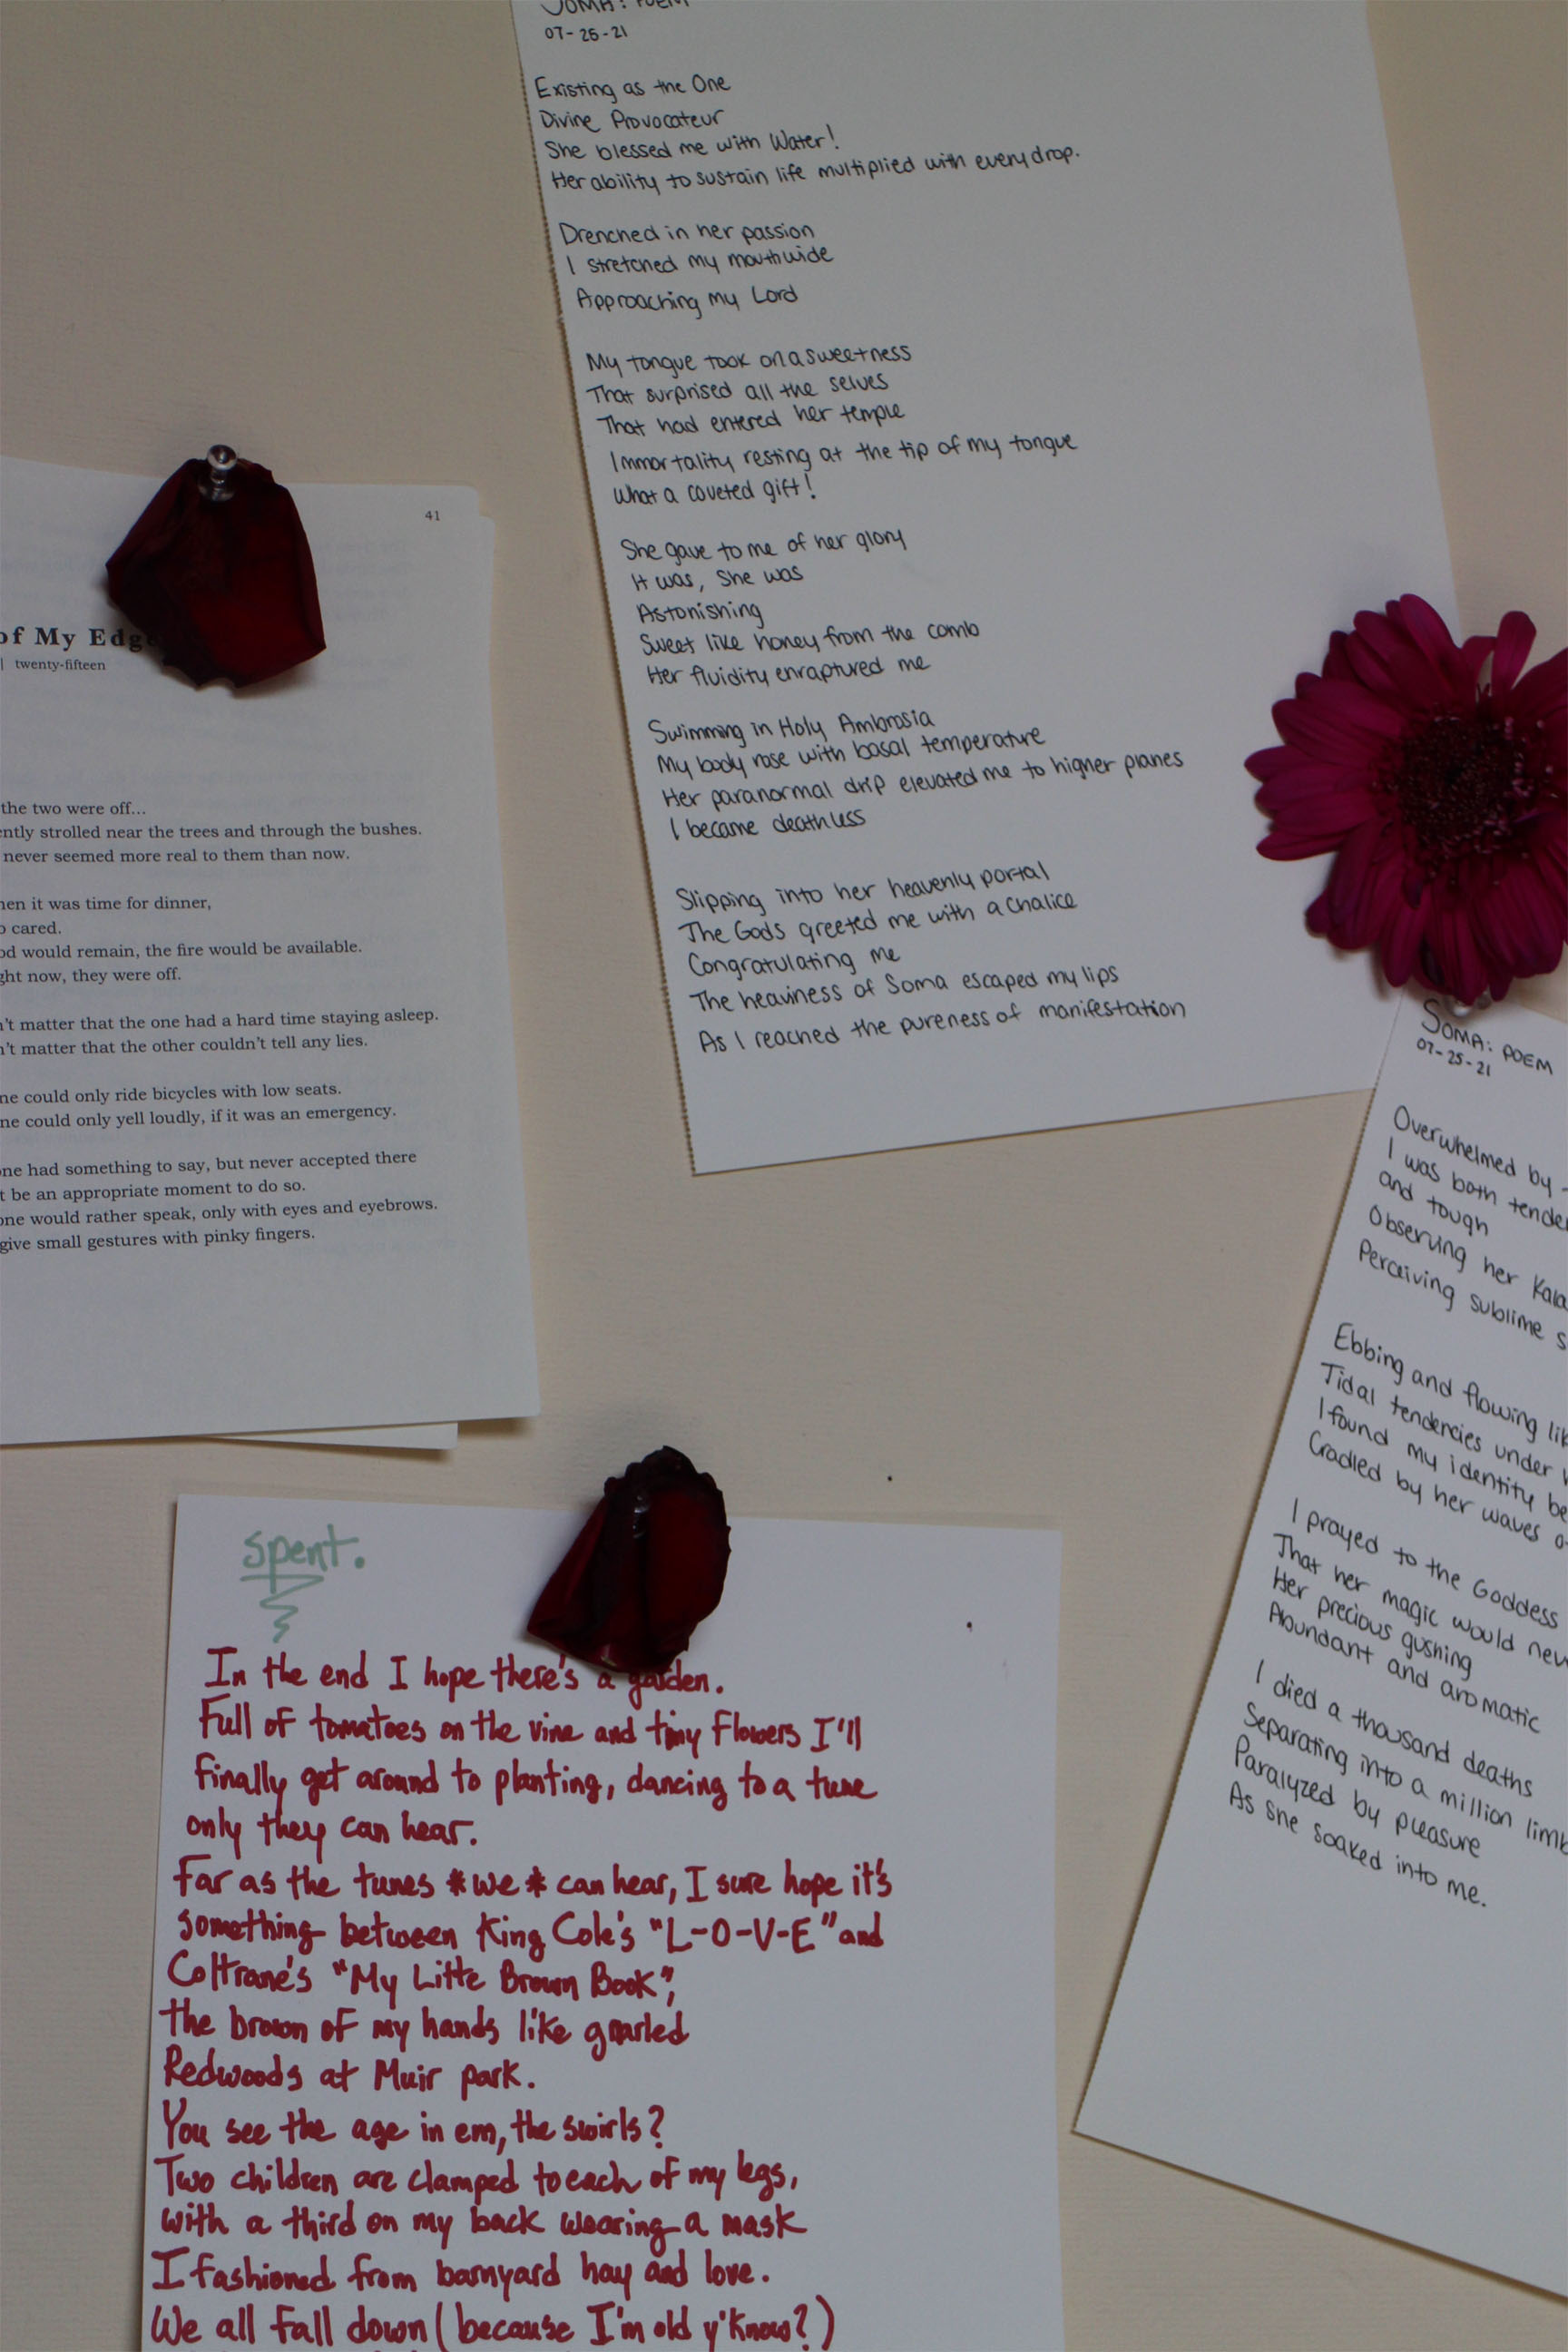 SOMA: POEM
07-25-21
Existing as the One
Divine Provocateur
She blessed me with Water!
Her ability to sustain life multiplied with every drop.
Drenched in her passion
I stretched my mouth wide
Approaching my Lord
My tongue took on a sweetness
That surprised all the selves
That had entered her temple
Immortality resting at the tip of my tongue
What a coveted gift!
She gave to me of her glory
It was, she was
Astonishing
Sweet like honey from the comb
Her fluidity enraptured me
Swimming in Holy Ambrosia
My body rose with basal temperature
Her paranormal drip elevated me to higher planes
I became deathless
Slipping into her heavenly portal
The Gods greeted me with a chalice
Congratulating me
The heaviness of Soma escaped my lips
As I reached the pureness of manifestation
41
of My Edge
| twenty-fifteen
the two were off...
ently strolled near the trees and through the bushes.
never seemed more real to them than now.
hen it was time for dinner,
o cared.
od would remain, the fire would be available.
ght now, they were off.
't matter that the one had a hard time staying asleep.
't matter that the other couldn't tell any lies.
ne could only ride bicycles with low seats.
ne could only yell loudly, if it was an emergency.
one had something to say, but never accepted there
t be an appropriate moment to do so.
one would rather speak, only with eyes and eyebrows.
give small gestures with pinky fingers.
SOMA: POEM
07-25-21
Overwhelmed by
I was both tender
and tough
Observing her Kala
Perceiving sublime s
Ebbing and flowing lik
Tidal tendencies under
I found my identity be
Cradled by her waves o
I prayed to the Goddess
That her magic would nev
Her precious gushing
Abundant and aromatic
I died a thousand deaths
Separating into a million limb
Paralyzed by pleasure
As she soaked into me.
spent.
In the end I hope there's a garden.
Full of tomatoes on the vine and tiny flowers I'll
finally get around to planting, dancing to a tune
only they can hear.
Far as the tunes *we* can hear, I sure hope it's
something between King Cole's "L-O-V-E" and
Coltrane's "My Litte Brown Book",
the brown of my hands like gnarled
Redwoods at Muir park.
You see the age in em, the swirls?
Two children are clamped to each of my legs,
with a third on my back wearing a mask
I fashioned from barnyard hay and love.
We all fall down (because I'm old y'know?)